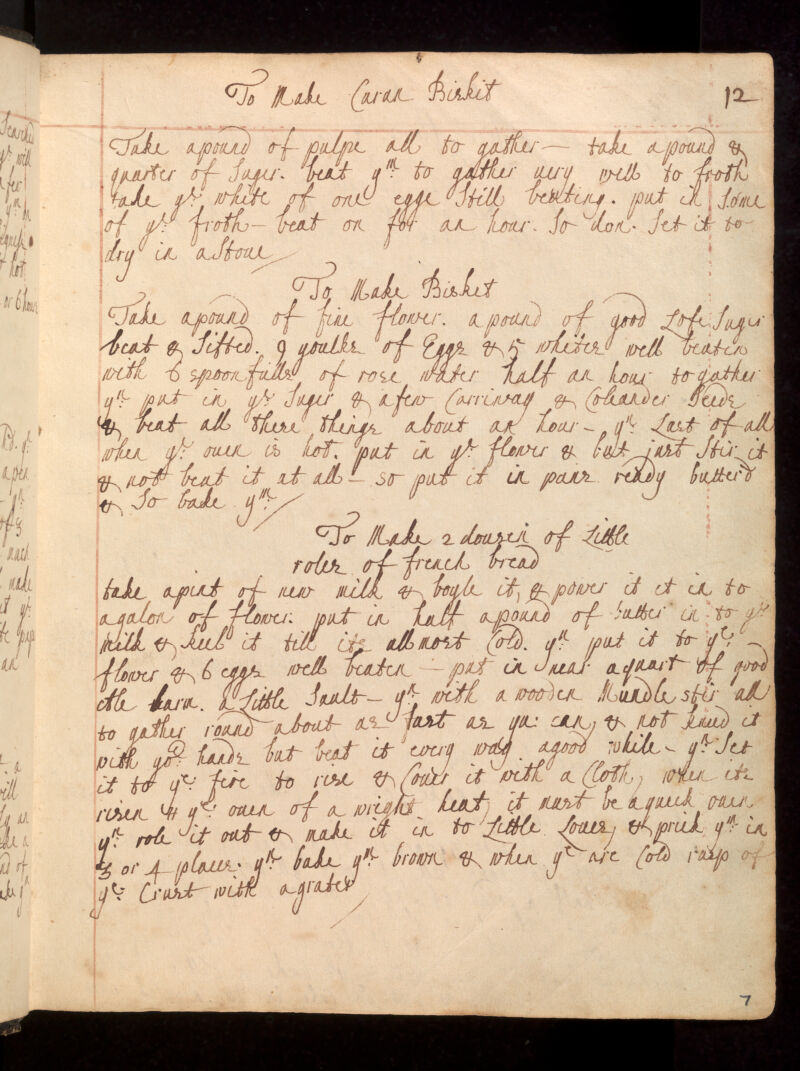 To Make Curan Biskit
12
Take a pound of pulpe all to gather – take a pound &
quarter of Suger. beat ym to gather uery well to froth
take ye white of one egge Still beating. put in Some
of ye froth – beat on for an hour. So don. Set it to
dry in a Stoue
To Make Bisket
Take a pound of fine flower. a pound of good Lofe Suger
beat & Sifted. 9 youlks of Eggs & 5 whites well beaten
with 6 spoonfulls of rose water half an hour to gather
yn put in yr Suger & a few Carriway & Coleander Seeds
& beat all these things about an hour – yn Last of all
when yr ouen is hot. put in yr flower & but just Stir it
& not beat it at all – so put it in pans ready butterd
& So bake ym
To Make 2 douzen of Little
roles of french bread
take a pint of new milk & boyle it, & power it et in to
a galon of flower. put in half a pound of butter in to ye
milk & keel it till its allmost Cold. yn put it to ye
flower & 6 eggs well beaten – put in near a quart of good
ele barm. a Little Sault – yn with a wooden Mundle stir all
to gather round about as fast as yu: can, & not knied it
with yor hands but beat it every way a good while – yn Set
it to ye fire to rise & Couer it with a Cloth, when its
risen & ye ouen of a wright heat, it must be a queek ouen
yn role it out & make it in to Little Loues, & prick ym in
3 or 4 places. yn bake ym brown & when ye are Cold rasp of
ye Crust with a grater
7